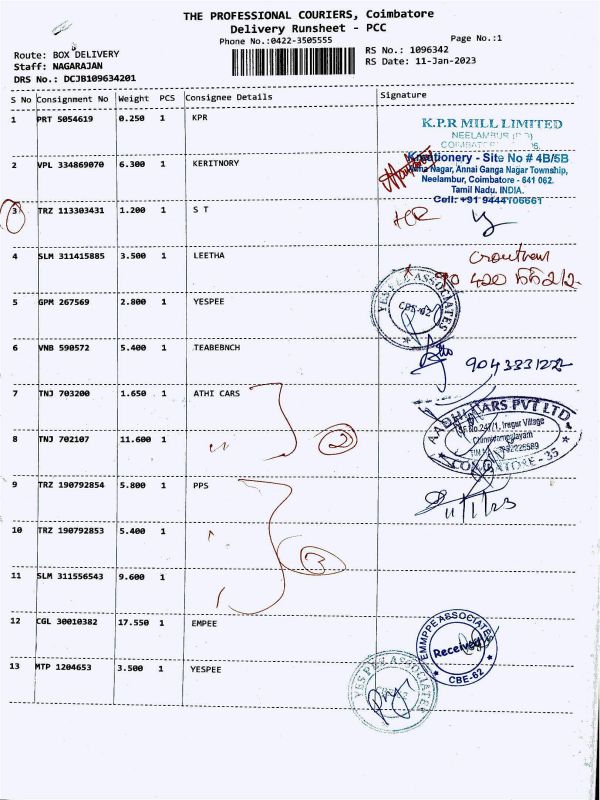 THE PROFESSIONAL COURIERS, Coimbatore
Delivery Runsheet - PCC
Phone No.:0422-3505555
Page No.:1
Route: BOX DELIVERY
Staff: NAGARAJAN
DRS No.: DCJB109634201
RS No.: 1096342
RS Date: 11-Jan-2023
S No Consignment No Weight PCS Consignee Details Signature
1 PRT 5054619 0.250 1 KPR
K.P.R MILL LIMITED
NEELAMBUR
COIMBATORE
2 VPL 334869070 6.300 1 KERITNORY
Kreationery - Site No # 4B/5B
Nagar, Annai Ganga Nagar Township,
Neelambur, Coimbatore - 641 062.
Tamil Nadu. INDIA.
Cell: +91 9444106661
3 TRZ 113303431 1.200 1 S T
4 SLM 311415885 3.500 1 LEETHA
5 GPM 267569 2.800 1 YESPEE
YES PEE ASSOCIATES
CBE-62
6 VNB 590572 5.400 1 TEABEBNCH
7 TNJ 703200 1.650 1 ATHI CARS
8 TNJ 702107 11.600 1
" 2
AADHI CARS PVT LTD
Irugur Village
COIMBATORE - 35
9 TRZ 190792854 5.800 1 PPS
11/1/23
10 TRZ 190792853 5.400 1
3
11 SLM 311556543 9.600 1
12 CGL 30010382 17.550 1 EMPEE
EMMPPE ASSOCIATES
Received
CBE-62
13 MTP 1204653 3.500 1 YESPEE
YES PEE ASSOCIATES